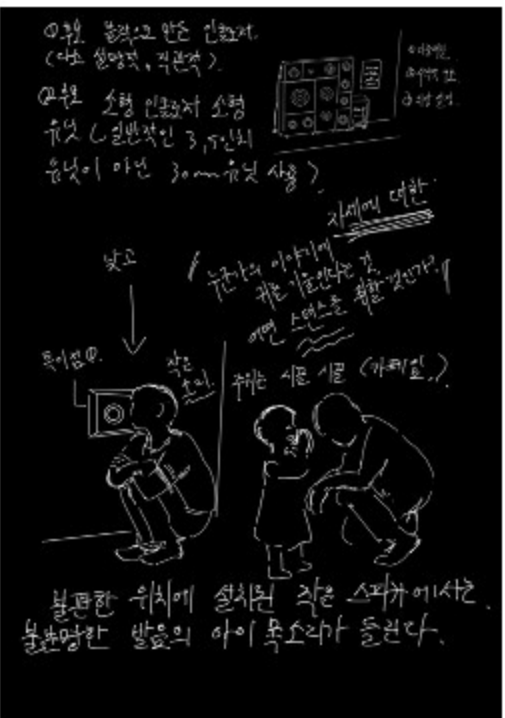 ①후보 불쾌으로 만든 인클로저.
(다소 설명적, 직관적).
②후보 소형 인클로저 소형
유닛 (일반적인 3,5인치
유닛이 아닌 30mm 유닛 사용)
자세에 대한
누군가의 이야기에
귀를 기울인다는 것
어떤 스탠스를 취할 것인가?
낮고
특이점①.
작은
소리.
주위는 시끌 시끌 (카페일.).
불편한 위치에 설치된 작은 스피커에서는
불분명한 발음의 아이 목소리가 들린다.